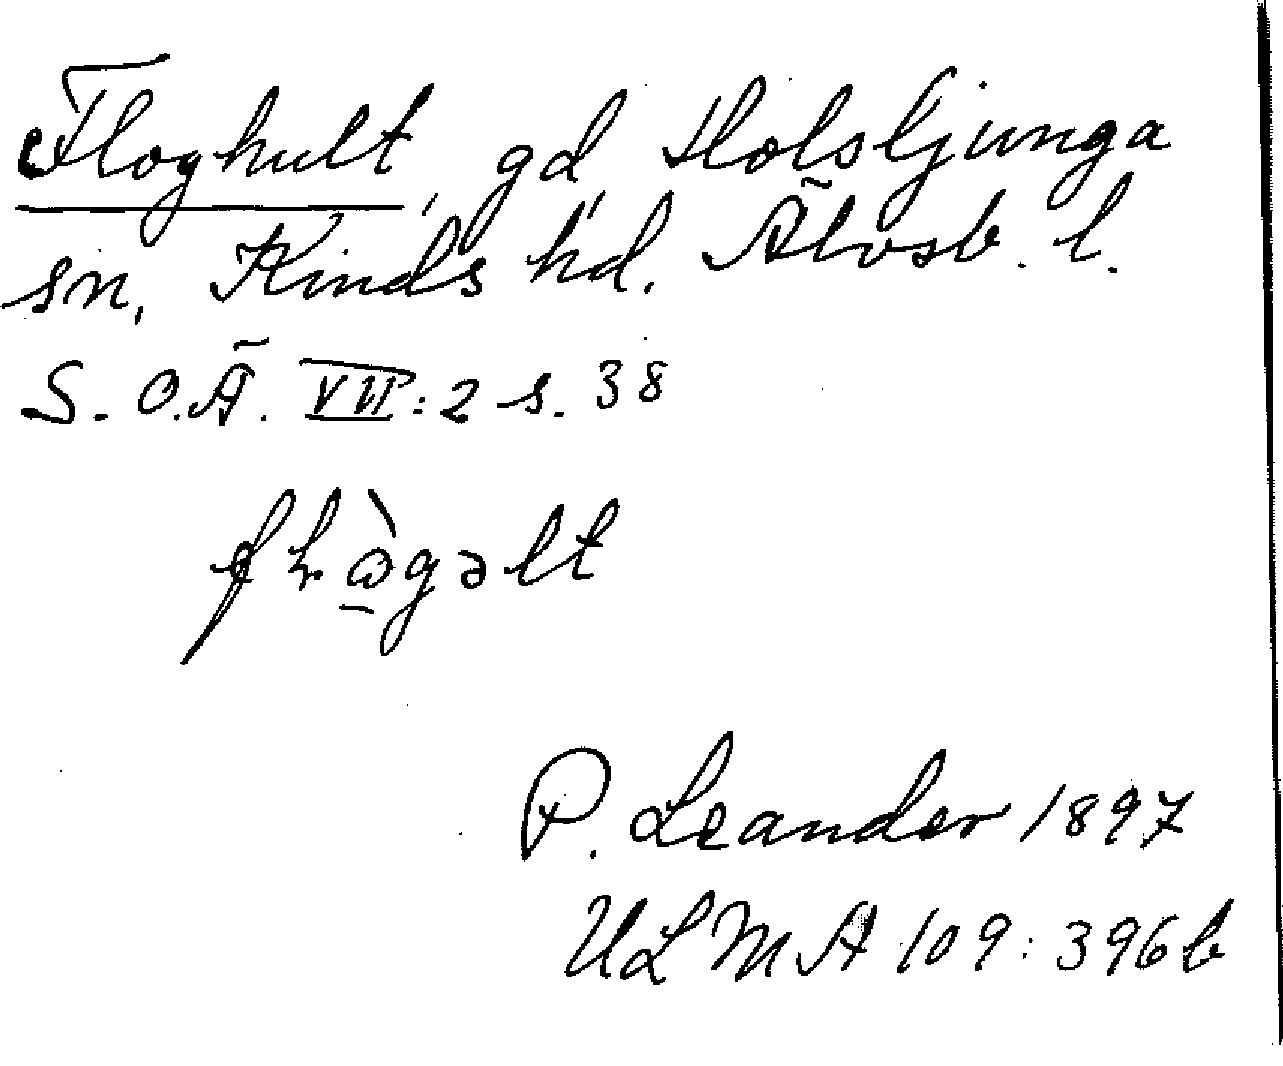 Floghult, gd, Holsljunga
sn, Kinds hd. Älvsb. l.
S. O. Ä. VII: 2 s. 38
P. Leander 1897
ULMA 109: 396 b